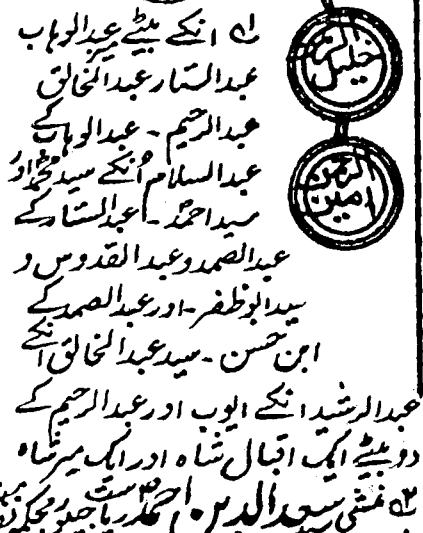 ۱؎ انکے بیٹے میر عبدالوہاب
عبدالستار عبدالخالق
عبدالرحیم - عبدالوہاب کے
عبدالسلام اُنکے سید محمد اور
سید احمد - عبدالستار کے
عبدالصمد و عبدالقدوس و
سید ابوظفر - اور عبدالصمد کے
ابن حسن - سید عبدالخالق انکے
عبدالرشید انکے ایوب اور عبدالرحیم کے
دو بیٹے ایک اقبال شاہ اور ایک میر شاہ
۲؎ منشی سید سعد الدین احمد ریاست
خلیل الرحمن
امین الرحمن